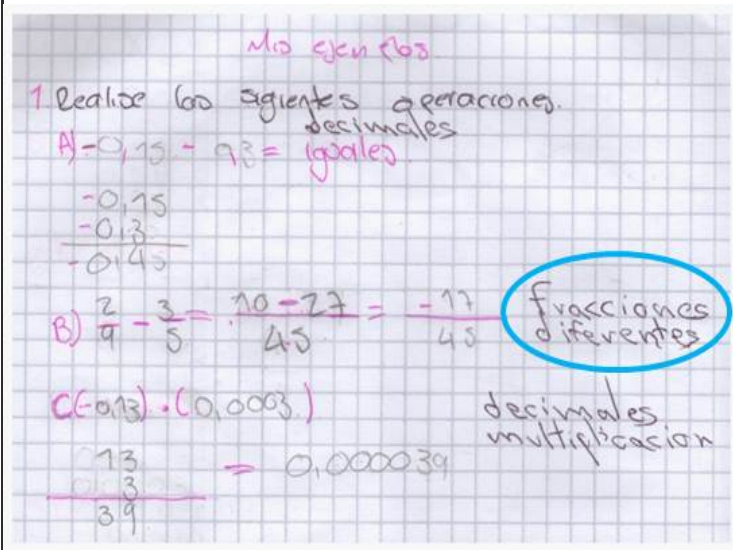 Mis ejemplos
1. Realise las sigientes operaciones.
decimales
A) -0,15 - 0,3 = iguales.
-0,15
-0,3
-0,45
B) 2/9 - 3/5 = 10-27/45 = -17/45 fracciones
diferentes
C(-0,13) · (0,0003) decimales
multiplicacion
13 = 0,000039
3
39